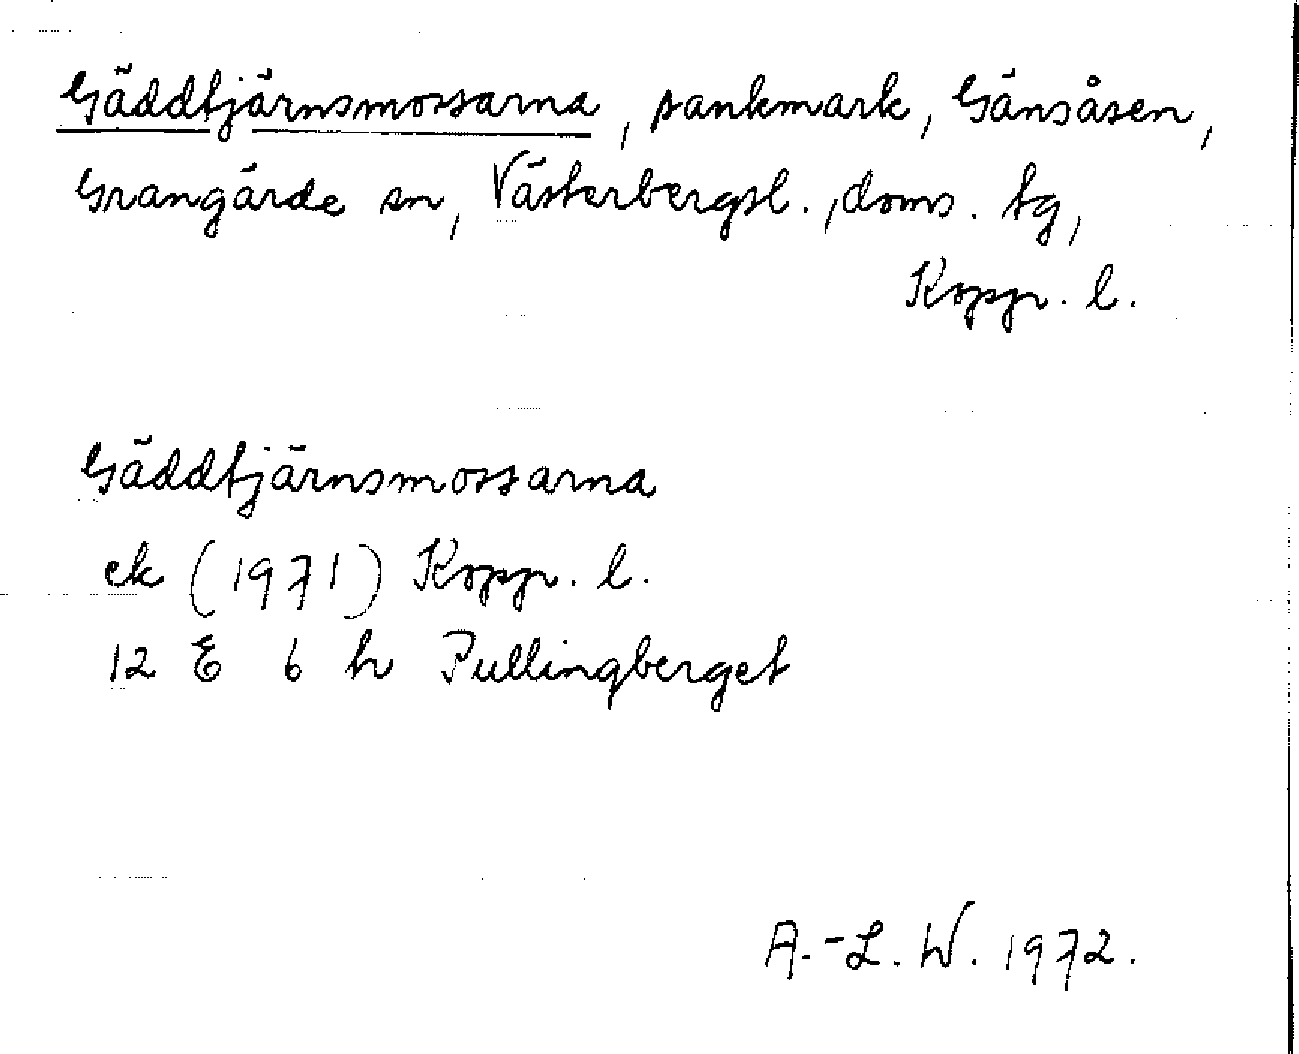 Gäddtjärnsmossarna, sankmark, Gänsåsen,
Grangärde sn, Västerbergsl., doms. tg,
Kopp. l.
Gäddtjärnsmossarna
ek (1971) Kopp. l.
12 E 6 h Pullingberget
A.-L. W. 1972.